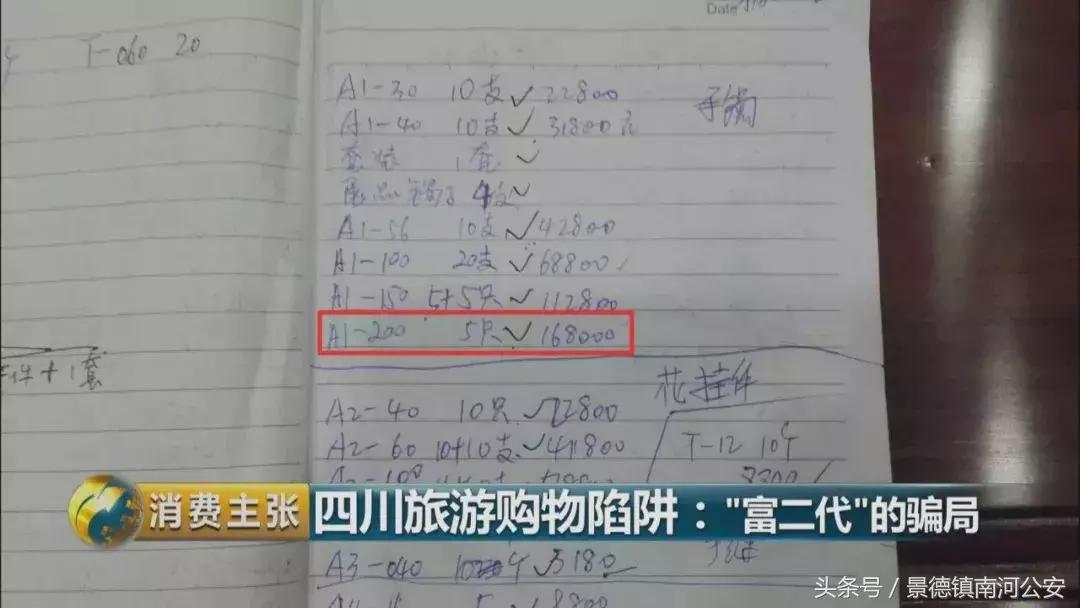 Date
T-060 20
A1-30 10支✓22800
手镯
A1-40 10支✓31800元
套装 1套✓
A1-56 10支✓42800
A1-100 20支✓68800
A1-150 5+5只✓112800
A1-200 5只✓168000
件+1套
花挂件
A2-40 10只✓22800
A2-60 10+10支✓41800
T-12 10个
8300
消费主张 四川旅游购物陷阱："富二代"的骗局
A3-040
3180
头条号/景德镇南河公安